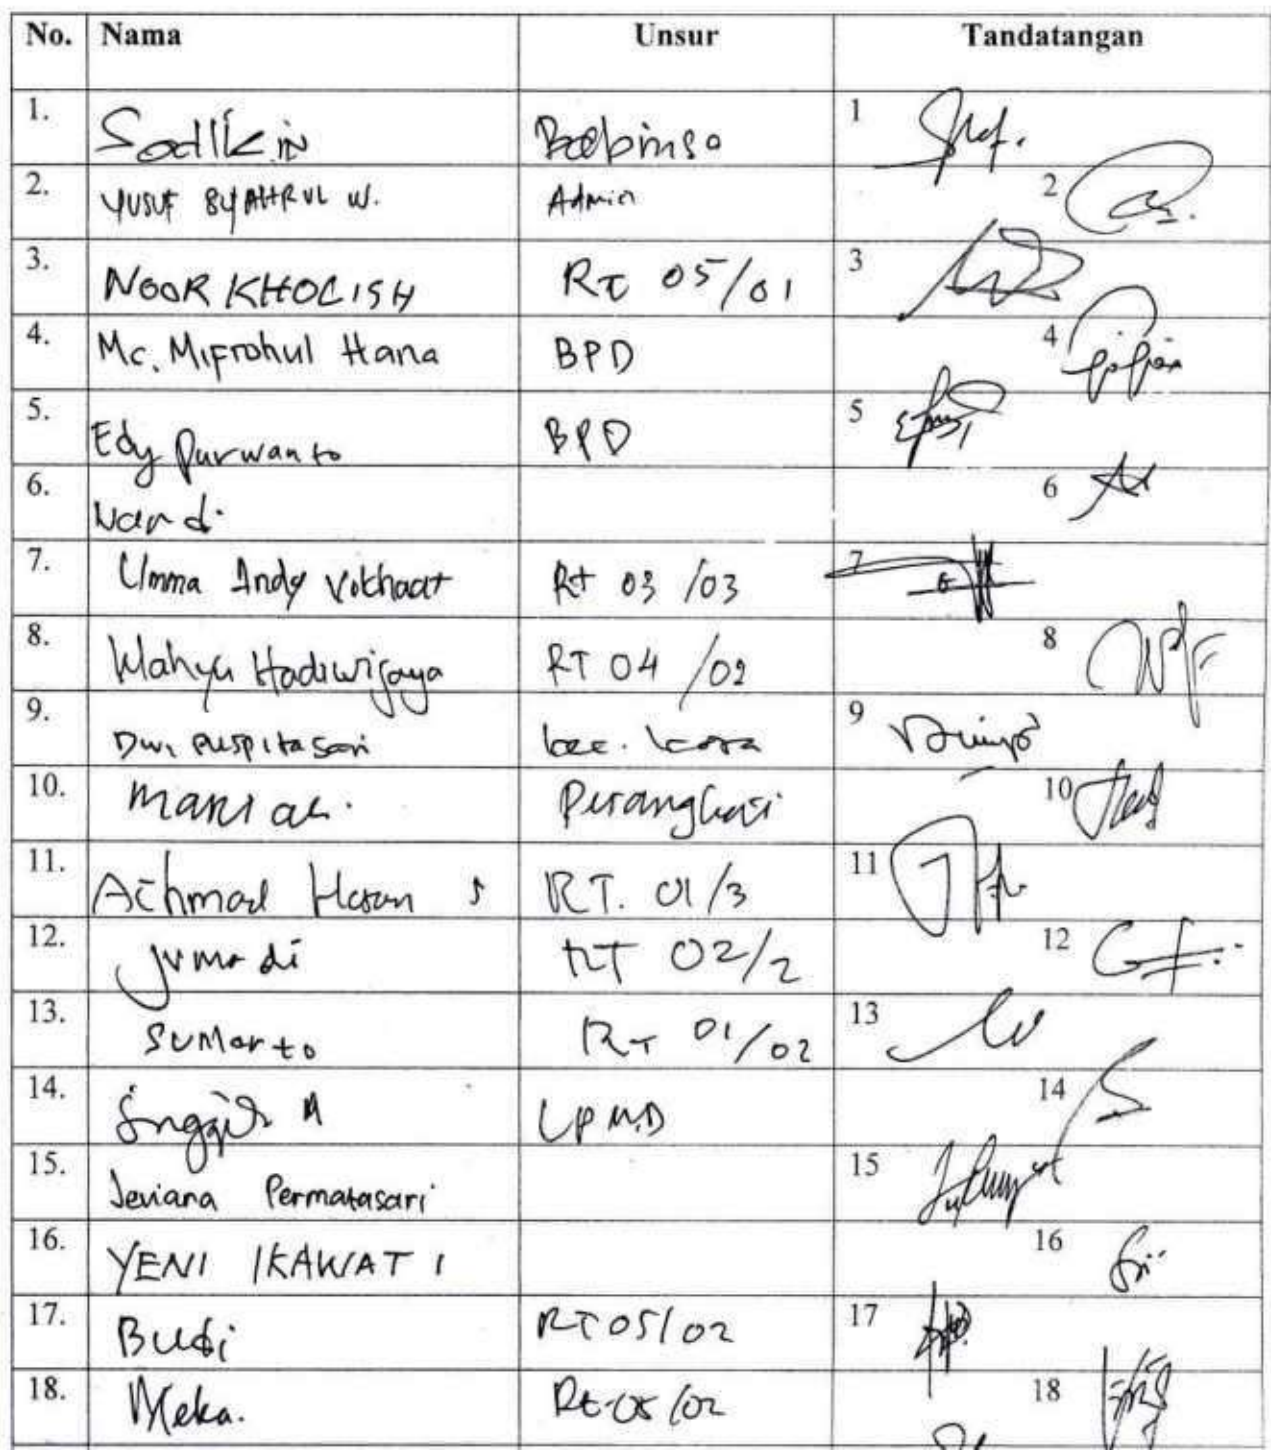 No. Nama Unsur Tandatangan
1. Sodikin Babinsa 1
2. YUSUF SYAHRUL W. Admin 2
3. NOOR KHOLISH RT 05/01 3
4. Mc. Miftohul Hana BPD 4
5. Edy Purwanto BPD 5
6. Nardi 6
7. Umma Andy Rt 03 /03 7
8. Wahyu Hadiwijaya RT 04 /02 8
9. Dwi puspitasari kec. kota 9
10. 10
11. Achmad Hasan S RT. 01/3 11
12. Jumadi RT 02/2 12
13. Sumarto RT 01/02 13
14. LPMD 14
15. Jeviana Permatasari 15
16. YENI IKAWATI 16
17. Budi RT 05/02 17
18. Meka. Rt-05/02 18